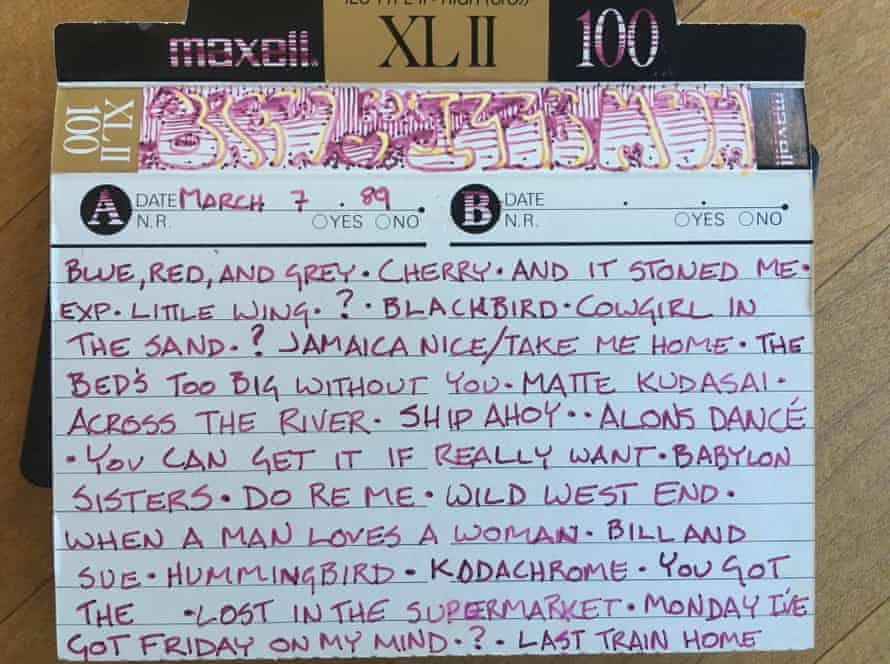 maxell. XL II 100
XL II 100
maxell
A DATE MARCH 7 . 89 B DATE . .
N.R. YES NO N.R. YES NO
BLUE, RED, AND GREY • CHERRY • AND IT STONED ME •
EXP • LITTLE WING • ? • BLACKBIRD • COWGIRL IN
THE SAND • ? JAMAICA NICE/TAKE ME HOME • THE
BED'S TOO BIG WITHOUT YOU • MATTE KUDASAI •
ACROSS THE RIVER • SHIP AHOY • • ALONS DANCÉ
• YOU CAN GET IT IF REALLY WANT • BABYLON
SISTERS • DO RE ME • WILD WEST END •
WHEN A MAN LOVES A WOMAN • BILL AND
SUE • HUMMINGBIRD • KODACHROME • YOU GOT
THE • LOST IN THE SUPERMARKET • MONDAY I'VE
GOT FRIDAY ON MY MIND • ? • LAST TRAIN HOME